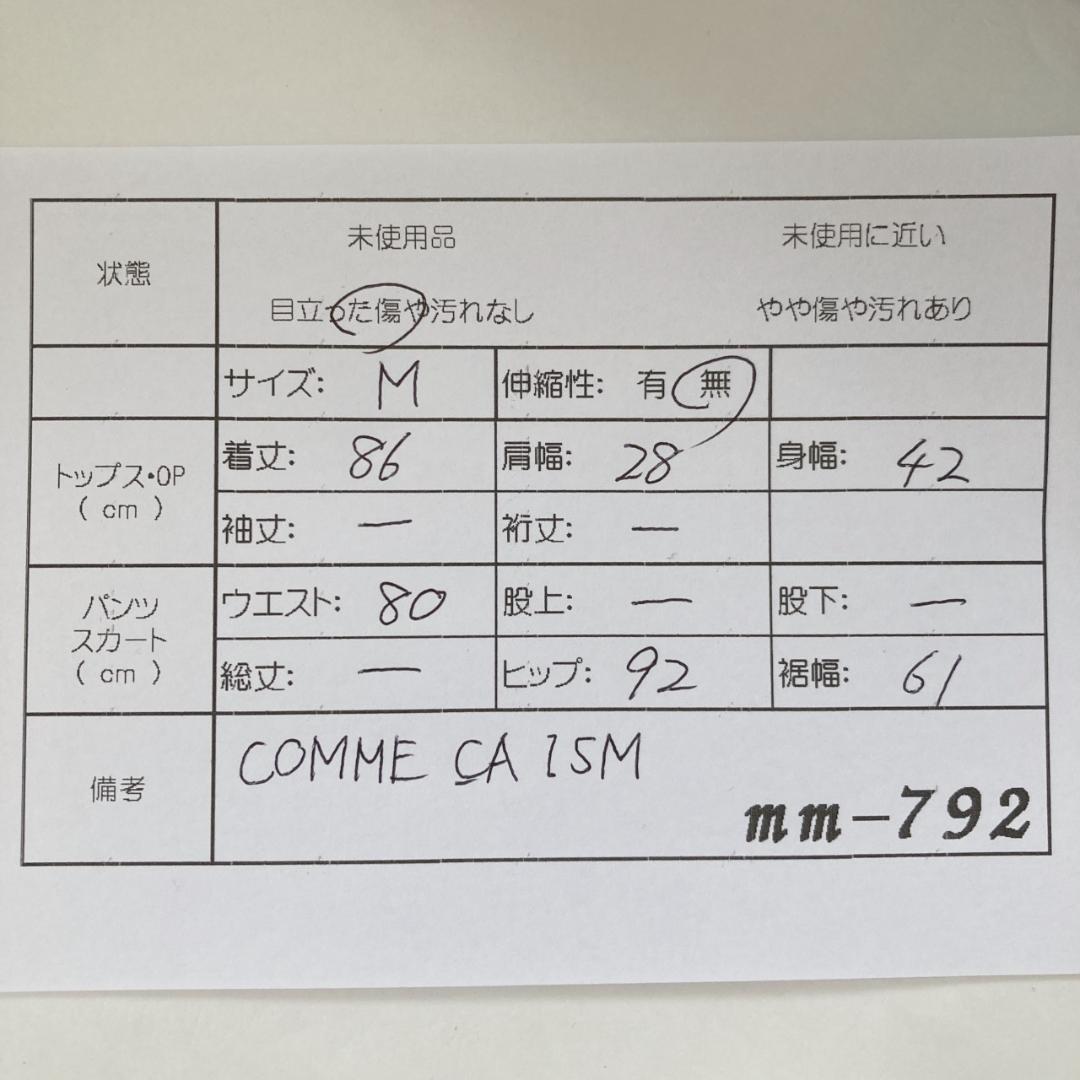 状態
未使用品 未使用に近い
目立った傷や汚れなし やや傷や汚れあり
サイズ: M 伸縮性: 有 無
トップス・OP
( cm )
着丈: 86 肩幅: 28 身幅: 42
袖丈: ー 裄丈: ー
パンツ
スカート
( cm )
ウエスト: 80 股上: ー 股下: ー
総丈: ー ヒップ: 92 裾幅: 61
備考
COMME CA ISM
mm-792